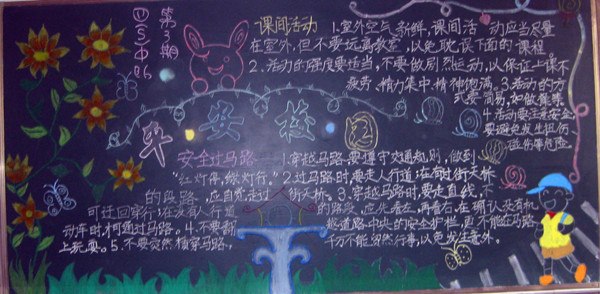 第3期
四(5)中06
课间活动 1.室外空气新鲜,课间活动应当尽量
在室外,但不要远离教室,以免耽误下面的课程
2.活动的强度要适当,不要做剧烈运动,以保证上课不
疲劳、精力集中、精神饱满。3.活动的方
式要简易,如做操等
4.活动要注意安全
要避免发生扭伤、
碰伤等危险。
平安校园
安全过马路 1.穿越马路,要遵守交通规则,做到
"红灯停,绿灯行。"2.过马路时要走人行道;在有过街天桥
的段路,应自觉走过街天桥。3.穿越马路时,要走直线,不
可迂回穿行;在没有人行道的路段,应先看左,再看右,在确认没有机
动车时才可通过马路。4.不要翻越道路中央的安全护栏,更不能在马路
上玩耍。5.不要突然横穿马路,千万不能贸然行事,以免发生意外。